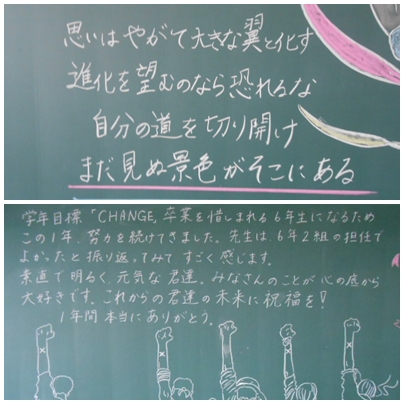 思いはやがて大きな翼と化す
進化を望むのなら恐れるな
自分の道を切り開け
まだ見ぬ景色がそこにある
学年目標「CHANGE」卒業を惜しまれる6年生になるため
この1年、努力を続けてきました。先生は、6年2組の担任で
よかったと振り返ってみて、すごく感じます。
素直で明るく、元気な君達。みなさんのことが心の底から
大好きです。これからの君達の未来に祝福を!
1年間本当にありがとう。